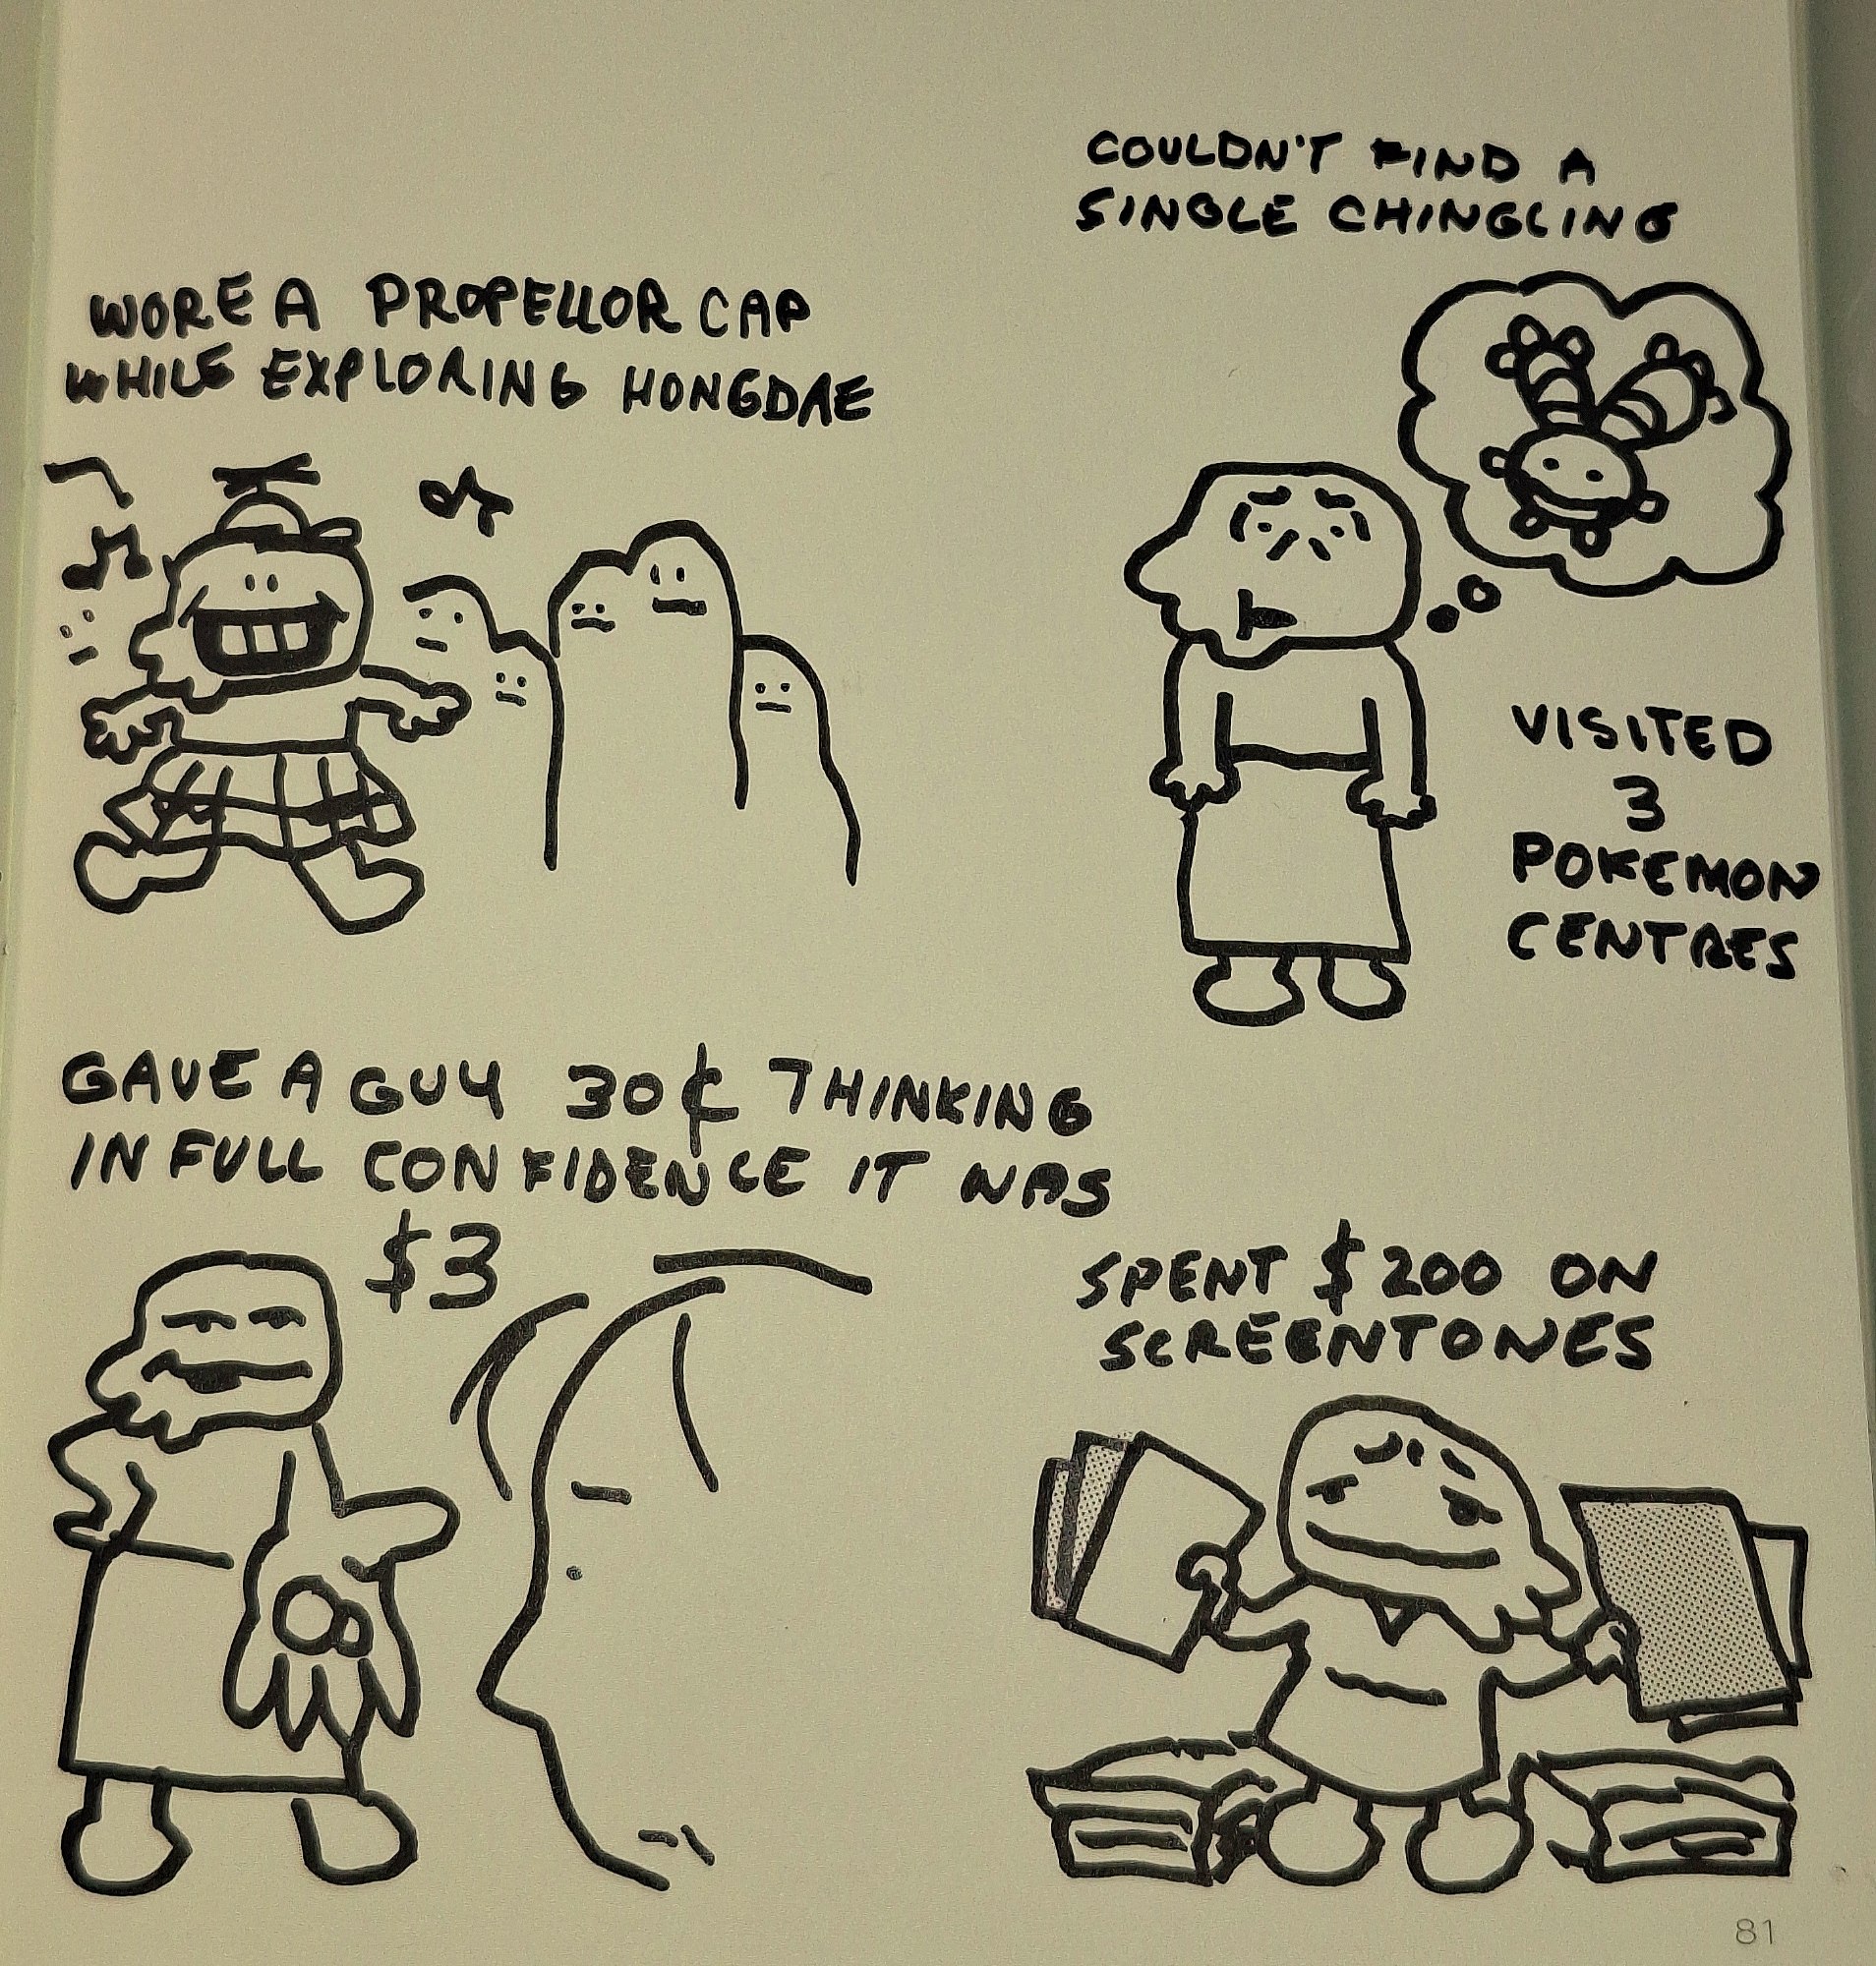 WORE A PROPELLOR CAP
WHILE EXPLORING HONGDAE
COULDN'T FIND A
SINGLE CHINGLING
VISITED
3
POKEMON
CENTRES
GAVE A GUY 30¢ THINKING
IN FULL CONFIDENCE IT WAS
$3
SPENT $200 ON
SCREENTONES
81